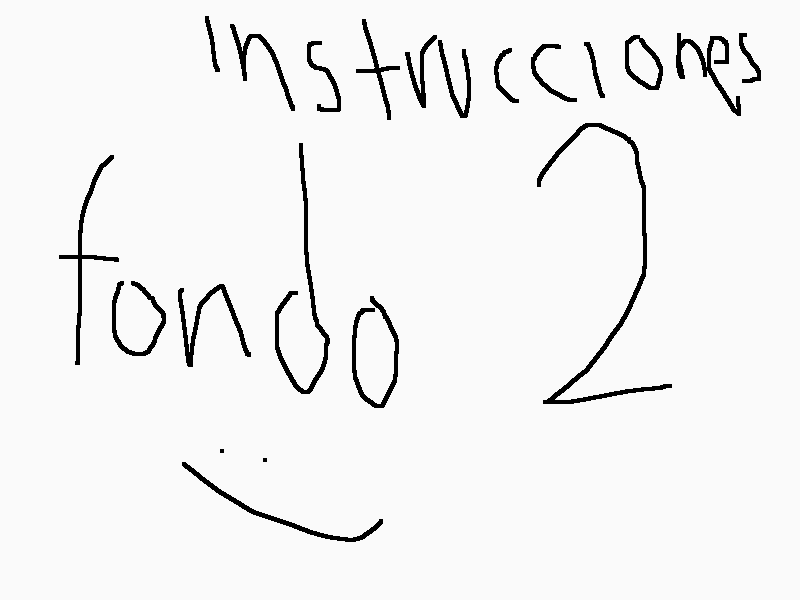 instrucciones
fondo 2